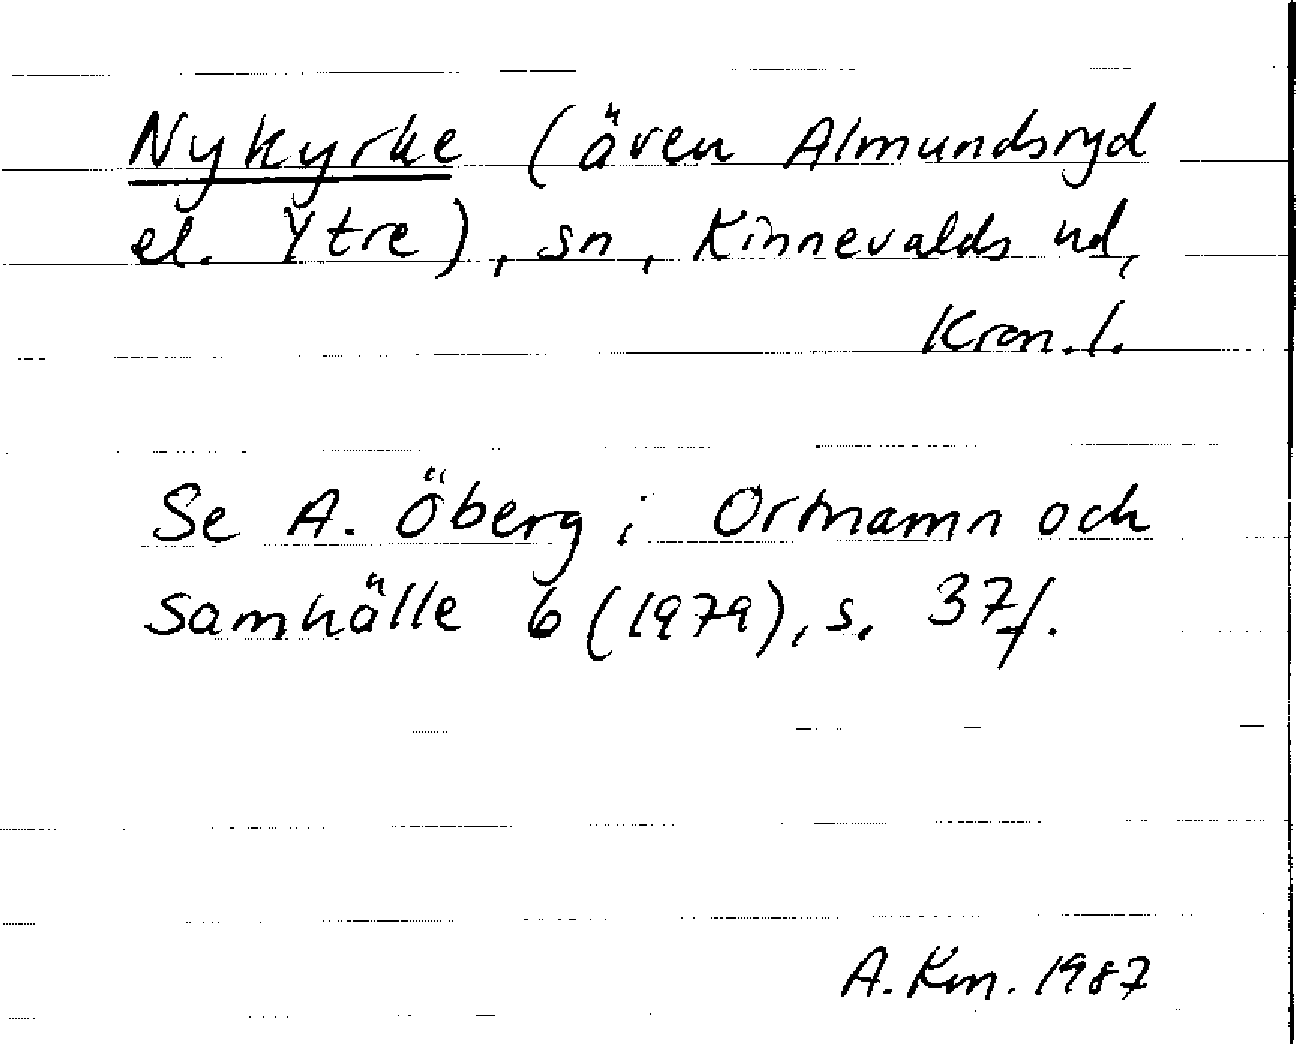 Nykyrke (även Almundsryd
el. Ytre), sn, Kinnevalds hd,
Kron. l.
Se A. Öberg i Ortnamn och
samhälle 6 (1979), s. 37f.
A. Km. 1987